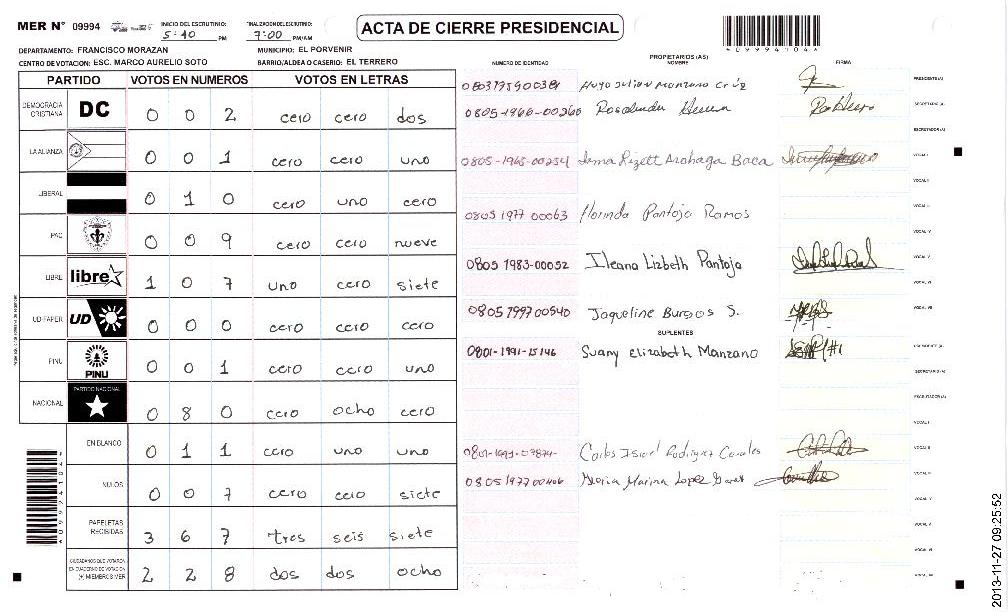 MER N° 09994
INICIO DEL ESCRUTINIO: 5:40 PM
FINALIZACION DEL ESCRUTINIO: 7:00 PM/AM
ACTA DE CIERRE PRESIDENCIAL
DEPARTAMENTO: FRANCISCO MORAZAN
MUNICIPIO: EL PORVENIR
CENTRO DE VOTACION: ESC. MARCO AURELIO SOTO
BARRIO/ALDEA O CASERIO: EL TERRERO
PARTIDO VOTOS EN NUMEROS VOTOS EN LETRAS
DEMOCRACIA CRISTIANA DC 0 0 2 cero cero dos
LA ALIANZA 0 0 1 cero cero uno
LIBERAL 0 1 0 cero uno cero
PAC 0 0 9 cero cero nueve
LIBRE libre 1 0 7 uno cero siete
UD-FAPER UD 0 0 0 cero cero cero
PINU PINU 0 0 1 cero cero uno
NACIONAL PARTIDO NACIONAL 0 8 0 cero ocho cero
EN BLANCO 0 1 1 cero uno uno
NULOS 0 0 7 cero cero siete
PAPELETAS RECIBIDAS 3 6 7 tres seis siete
CIUDADANOS QUE VOTARON EN CUADERNO DE VOTACION (+) MIEMBROS MER 2 2 8 dos dos ocho
NUMERO DE IDENTIDAD
PROPIETARIOS (AS)
NOMBRE
FIRMA
Hugo Julian Manzano Cruz PRESIDENTE(A)
Rosalinda SECRETARIO(A)
ESCRUTADOR(A)
0805-1965-00254 Irma Lizett VOCAL I
VOCAL II
0805 1977 00063 Florinda Pantoja Ramos VOCAL III
VOCAL IV
0805 1983-00052 Ileana Lizbeth Pantoja VOCAL V
VOCAL VI
0805 1997 00540 Jaqueline Burgos S. VOCAL VII
SUPLENTES
0801-1991-15146 Suany Elizabeth Manzano PRESIDENTE(A)
SECRETARIO(A)
ESCRUTADOR(A)
VOCAL I
VOCAL II
Carlos VOCAL III
Marina Lopez VOCAL IV
VOCAL V
VOCAL VI
2013-11-27 09:25:52